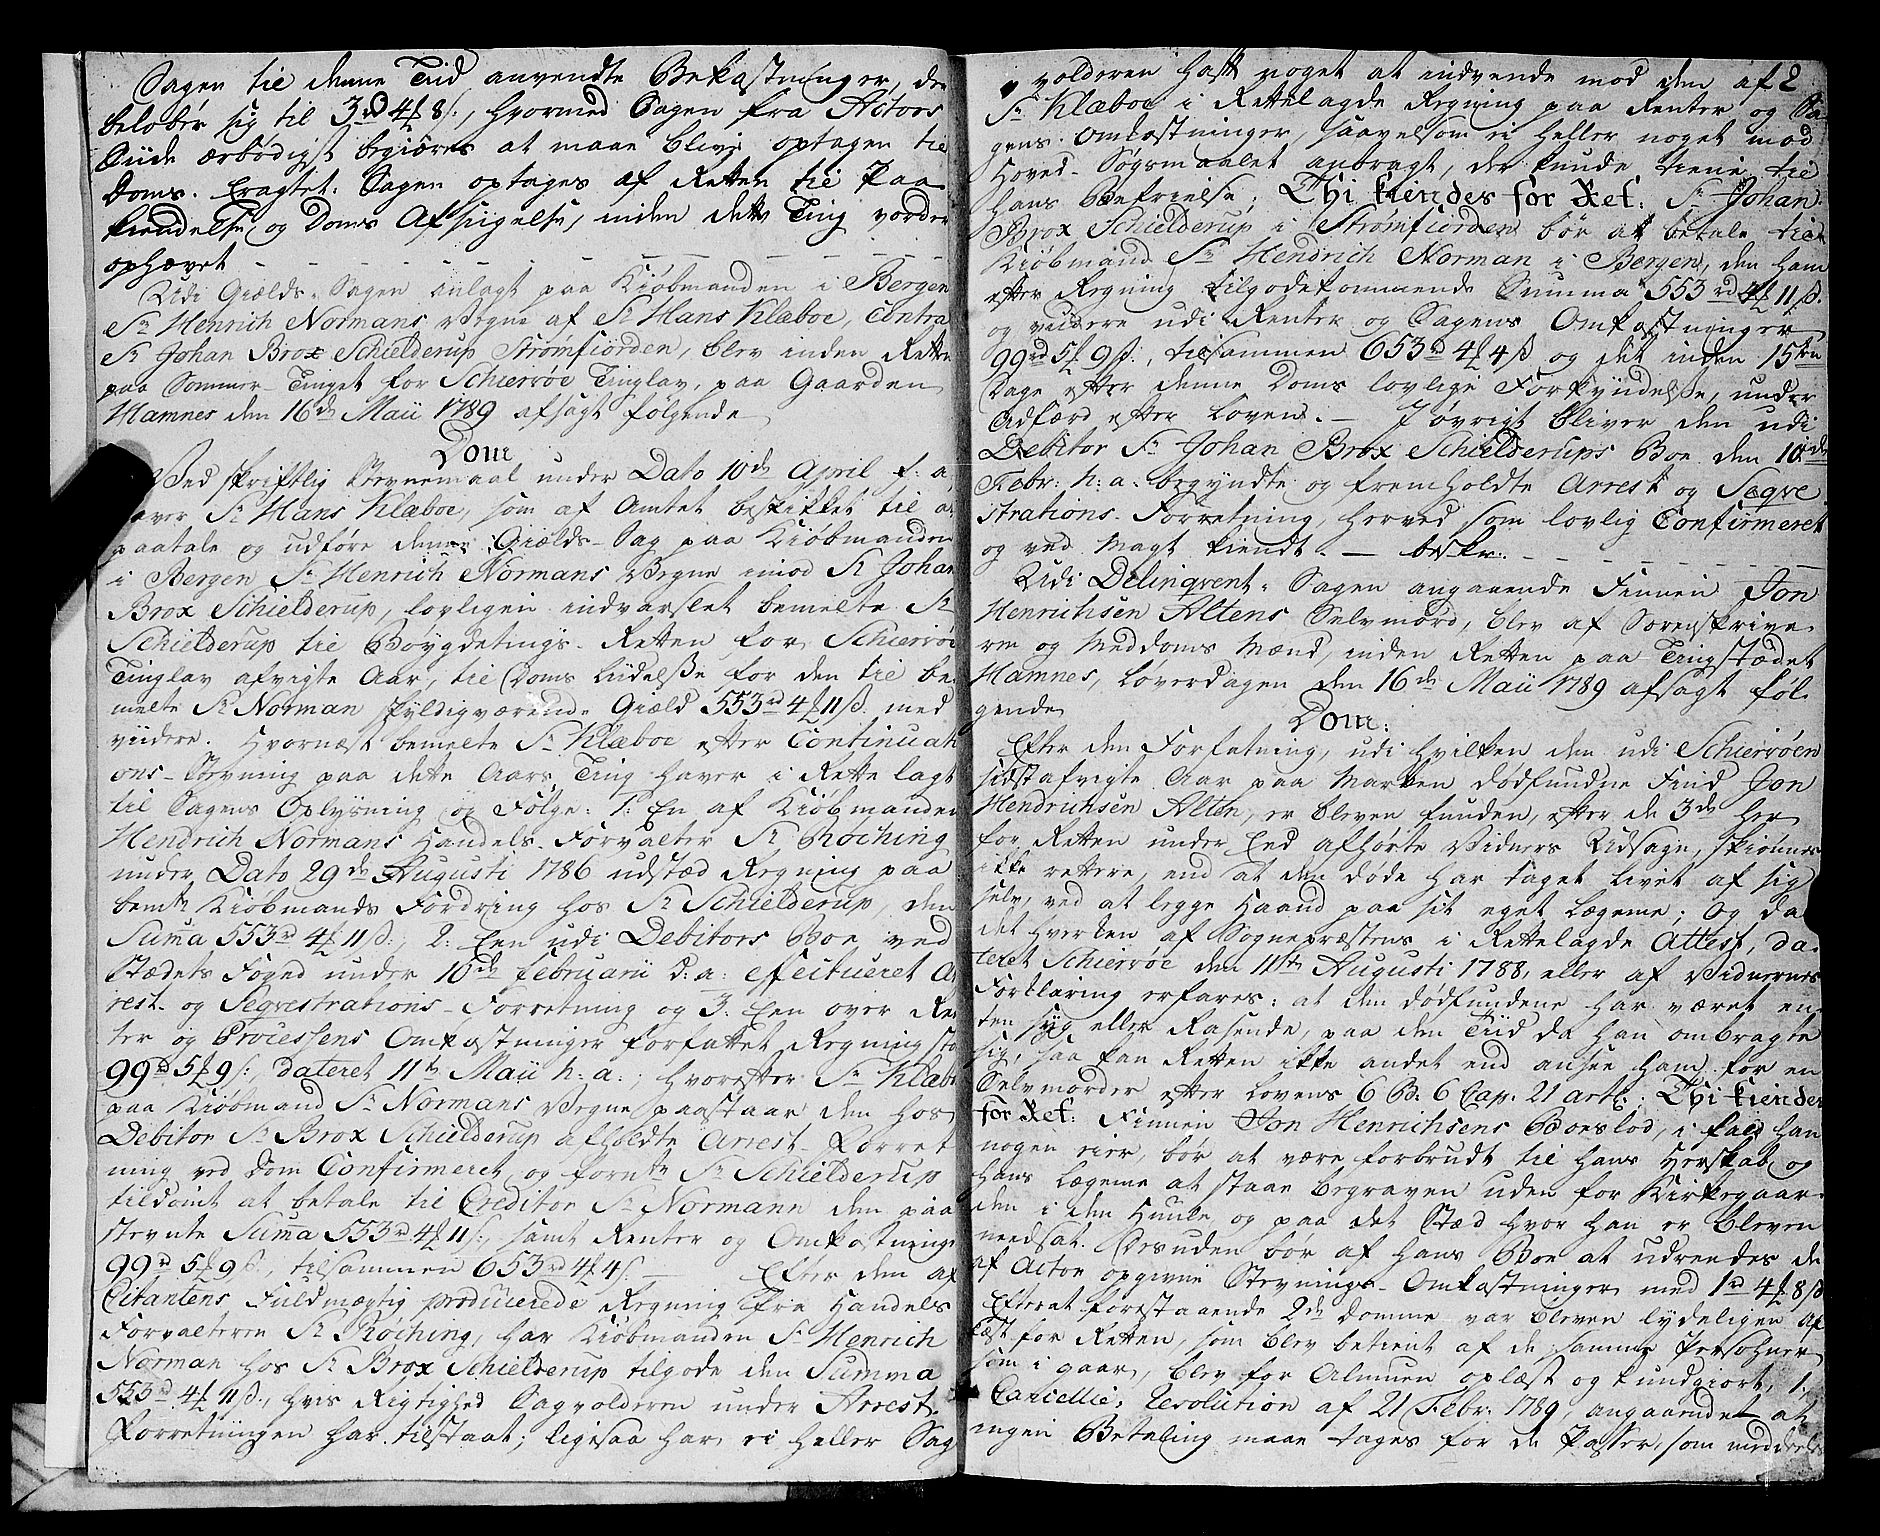 Sagen til denne Tiid anvendte Bekostninger, der
beløber sig til 3rd 4f 8s:, hvormed Sagen fra Actors
Siide ærbødigst begiæres at maae blive optagen til
Doms. Eragtet: Sagen optages af Retten til Paa-
kiendelse og Doms Afsigelse, inden dette Ting vorder
ophævet
Udi Giælds-Sagen anlagt paa Kiøbmanden i Bergen
Sr Henrich Normans Vegne af Sr Hans Klæboe, contra
Sr Johan Brox Schielderup Strømfiorden, blev inden Retten
paa Sommer-Tinget for Schiervøe Tinglav, paa Gaarden
Hamnes den 16de Maii 1789 afsagt følgende
Dom
Ved skriftlig Stevnemaal under Dato 10de April f: a,
haver Sr Hans Klæboe, som af Amtet beskikket til at
paatale og udføre denne Giælds-Sag paa Kiøbmanden
i Bergen Sr Henrich Normans Vegne imod Sr Johan
Brox Schielderup, lovligen indvarslet bemelte Sr
Schielderup til Bøygdetings-Retten for Schiervøe
Tinglav afvigte Aar, til Doms Liidelsse for den til be-
melte Sr Norman skyldigværende Giæld 553rd 4f 11s. med
viidere. Hvornæst bemelte Sr Klæboe efter Continuati-
ons-Stevning paa dette Aars Ting haver i Rette lagt
til Sagens Oplysning og Følge: 1. En af Kiøbmanden
Hendrich Normans Handels-Forvalter Sr Røching
under Dato 29de Augusti 1786 udstæd Regning paa
bemte Kiøbmands Fordring hos Sr Schielderup, den
Suma 553rd 4f 11s:, 2: Een udi Debitors Boe ved
Stædets Foged under 10de Februarii d: a: efectueret Ar-
rest- og Seqvestrations-Forretning og 3. Een over Ren-
ter og Processens Omkostninger forfattet Regning stor
99rd 5f 9s:, dateret 11te Maii h: a:, hvorefter Sr Klæboe
paa Kiøbmand Sr Normans Vegne paastaar den hos
Debitor Sr Brox Schielderup afholdte Arrest-Forret-
ning ved Dom Confirmeret, og fornte Sr Schielderup
tildømt at betale til Creditor Sr Normann den paa-
stevnte Suma 553rd 4f 11s:, samt Renter og Omkostninger
99rd 5f 9s., tilsammen 653rd 4f 4s: Efter den af
Citantens Fuldmægtig producerede Regning fra Handels
Forvalteren Sr Røching, har Kiøbmanden Sr Henrich
Norman hos Sr Brox Schielderup tilgode den Summa
553rd 4f 11s., hvis Rigtighed Sagvolderen under Arrest-
Forretningen har tilstaat; ligesaa har ei heller Sag-
volderen haft noget at indvende mod den af
Sr Klæboe i Rettelagde Regning paa Renter og Sa-
gens Omkostninger, saavelsom ei heller noget mod
Hoved-Søgsmaalet anbragt, der kunde tiene til
hans Befrielse; Thi kiendes for Ret: Sr Johan
Brox Schielderup i Strømfiorden bør at betale til
Kiøbmand Sr Hendrich Norman i Bergen, den ham
efter Regning tilgodekommende Summa 553rd 4f 11s.
og viidere udi Renter og Sagens Omkostninger
99rd 5f 9s., tilsammen 653rd 4f 4s og det inden 15ten
Dage efter denne Doms lovlige Forkyndelsse, under
Adfærd efter Loven. — I øvrigt bliver den udi
Debitor Sr Johan Brox Schielderups Boe den 10de
Febr: h: a: begyndte og fremholdte Arrest og Seqve-
strations-Forretning, herved som lovlig Confirmeret
og ved Magt kiendt. — beskr.
Udi Delinqvent-Sagen angaaende Finnen Jon
Henrichsen Altens Selvmord, blev af Sorenskrive-
ren og Meddoms Mænd, inden Retten paa Tingstædet
Hamnes, Løverdagen den 16de Maii 1789 afsagt føl-
gende
Dom:
Efter den Forfatning, udi hvilken den udi Schiervøen
sidstafvigte Aar paa Marken dødfundne Find Jon
Hendrichsen Alten, er bleven funden, efter de 3de her
for Retten under Eed afhørte Vidners Udsagn, skiønnes
ikke rettere, end at den døde har taget livet af sig
selv, ved at legge Haand paa sit eget Lægeme; Og da
det hverken af Sognepræstens i Rettelagde Attest, da-
teret Schiervøe den 11te Augusti 1788, eller af Vidnernes
Forklaring erfares: at den dødfundene har været en-
ten syg eller Rasende, paa den Tiid da han ombragte
sig, saa kan Retten ikke andet end ansee ham for en
Selvmorder efter Lovens 6 B: 6 Cap: 21 artl: Thi kiendes
for Ret: Finnen Jon Henrichsens Boeslod, i fald han
nogen eier, bør at være forbrudt til hans Herskab og
hans Lægeme at staae begraven uden for Kirkegaar-
den i den Huule, og paa det Stæd hvor han er bleven
nedsat. Desuden bør af hans Boe at udredes de
af Actor opgivne Stevnings-Omkostninger med 1rd 4f 8s
Efterat forestaaende 2de Domme var bleven lydeligen af-
læst for Retten, som blev betient af de samme Personer
som i gaar, blev for Almuen oplæst og kundgiort, 1:
Cancellie: Resolution af 21 Febr: 1789, angaaendet at
ingen Betaling maae tages for de Passer, som meddeeles